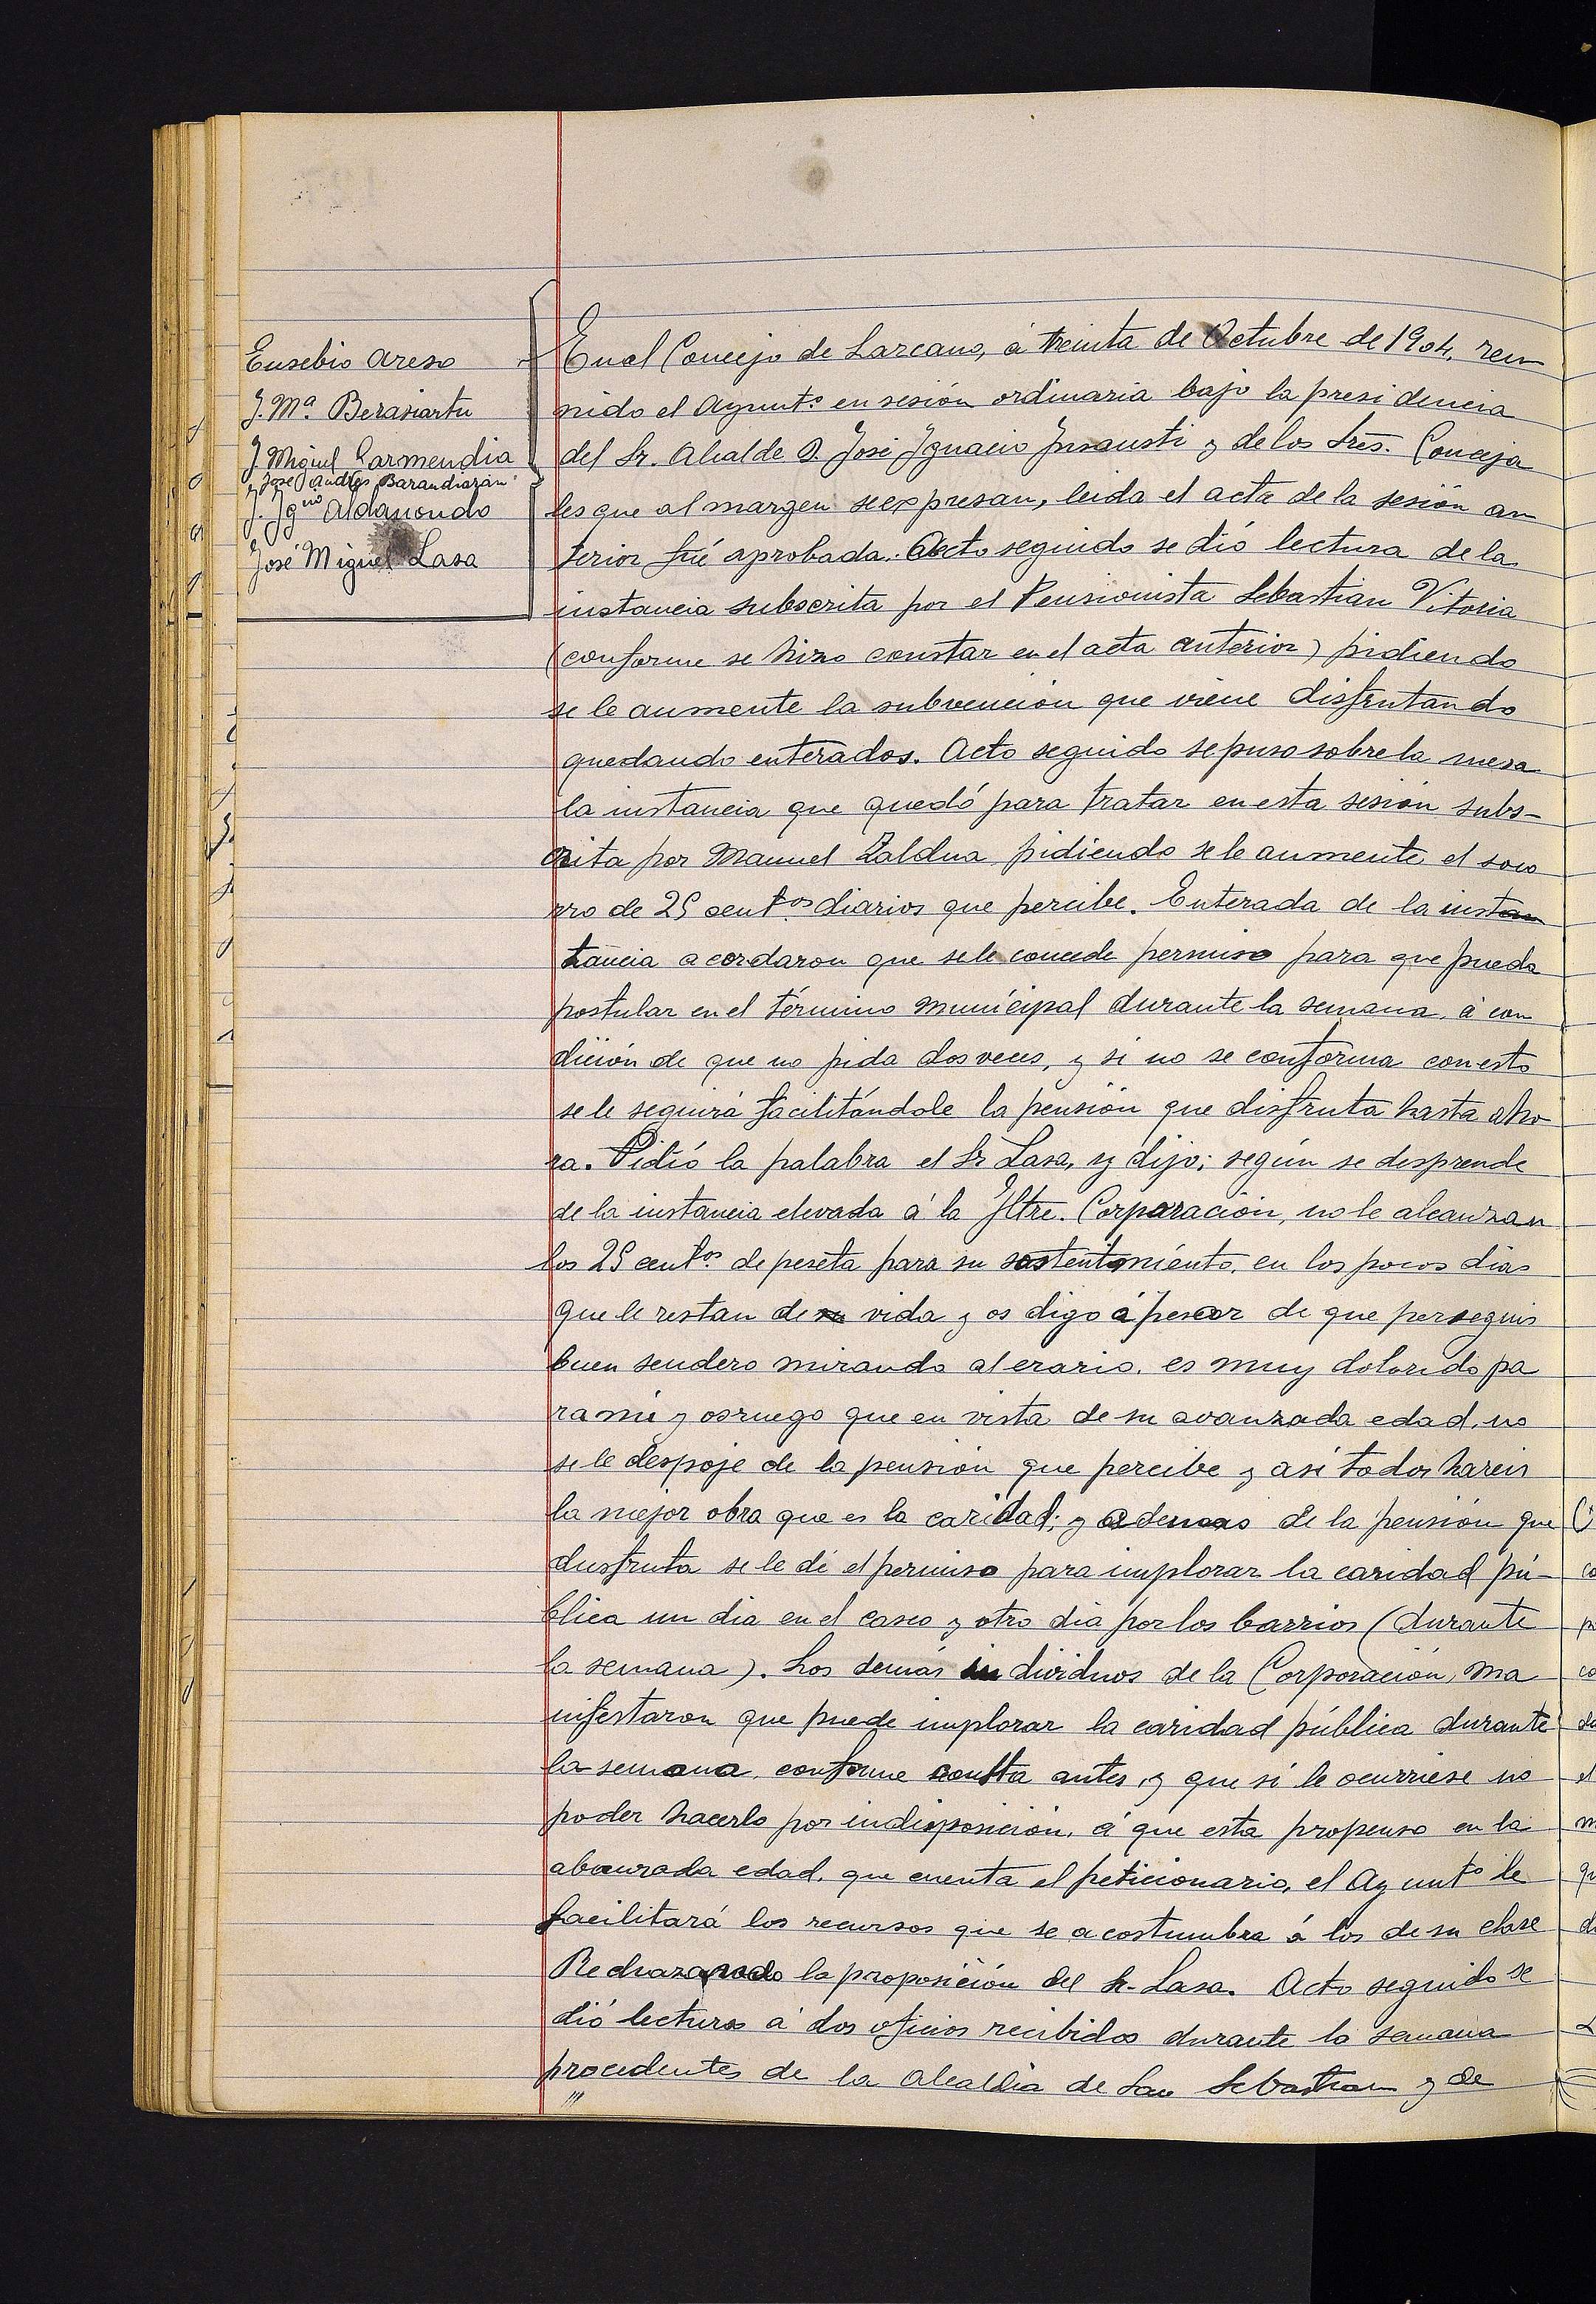 Eusebio Areso
J. Mª. Berasiartu
J. Miguel Garmendia
José Andrés Barandiarán
J. Igⁿⁱᵒ Aldanondo
José Miguel Lasa
En el Concejo de Lazcano, á treinta de Octubre de 1904, reu
nido el Ayuntº en sesión ordinaria bajo la presidencia
del Sr. Alcalde D. José Ignacio Insausti y de los Sres. Conceja
les que al margen se expresan, leida el acta de la sesión an
terior fué aprobada. Acto seguido se dió lectura de la
instancia subscrita por el Pensionista Sebastian Vitoria
(conforme se hizo constar en el acta anterior) pidiendo
se le aumente la subvención que viene disfrutando
quedando enterados. Acto seguido se puso sobre la mesa
la instancia que quedó para tratar en esta sesión subs-
crita por Manuel Zaldua pidiendo se le aumente el soco
rro de 25 centᵒˢ diarios que percibe. Enterada de la instan
tancia acordaron que se le concede permiso para que pueda
postular en el término municipal durante la semana, á con
dición de que no pida dos veces, y si no se conforma con esto
se le seguirá facilitándole la pensión que disfruta hasta aho
ra. Pidió la palabra el Sr Lasa, y dijo; según se desprende
de la instancia elevada á la Iltre. Corporación, no le alcanzan
los 25 centᵒˢ de peseta para su sostenimiento, en los pocos dias
que le restan de su vida y os digo á pesar de que perseguis
buen sendero mirando al erario, es muy dolorido pa
ra mi y os ruego que en vista de su avanzada edad, no
se le despoje de la pensión que percibe y asi todos hareis
la mejor obra que es la caridad; y ademas de la pensión que
disfruta se le dé el permiso para implorar la caridad pú-
blica un dia en el casco y otro dia por los barrios (durante
la semana). Los demás individuos de la Corporación, ma
nifestaron que puede implorar la caridad pública durante
la semana, conforme consta antes, y que si le ocurriese no
poder hacerlo por indisposición, á que esta propenso en la
abanzada edad, que cuenta el peticionario, el Ayuntº le
facilitará los recursos que se acostumbra á los de su clase
Rechazando la proposición del Sr. Lasa. Acto seguido se
dió lectura á dos oficios recibidos durante la semana
procedentes de la Alcaldia de San Sebastian y de